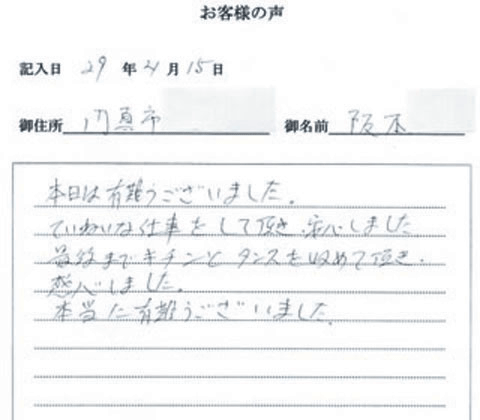 お客様の声
記入日 29 年 4 月 15 日
御住所 門真市 御名前 阪本
本日は有難うございました。
ていねいな仕事をして頂き、安心しました
最後までキチンとタンスを収めて頂き、
感心しました。
本当に有難うございました